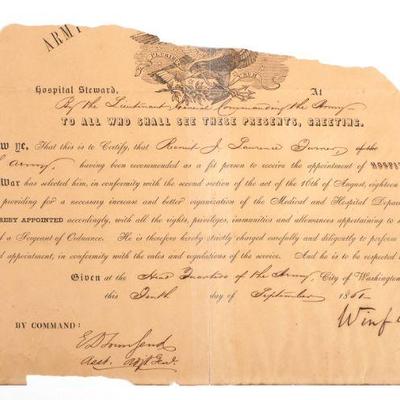 ARMY
E PLURIBUS UNUM
Hospital Steward, At
By the Lieutenant General Commanding the Army
TO ALL WHO SHALL SEE THESE PRESENTS, GREETING.
ow ye. That this is to Certify, that Recruit J. Laurence Turner, of the
Army, having been recommended as a fit person to receive the appointment of HOSPI
War has selected him, in conformity with the second section of the act of the 16th of August, eighteen
providing for a necessary increase and better organization of the Medical and Hospital Depar
EREBY APPOINTED accordingly, with all the rights, privileges, immunities and allowances appertaining to
d a Sergeant of Ordnance. He is therefore hereby strictly charged carefully and diligently to perform
d appointment, in conformity with the rules and regulations of the service. And he is to be respected
Given at the Head Quarters of the Army, City of Washington
this Tenth day of September 1861
Winf
BY COMMAND:
E D Townsend
Asst. Adjt. Gen.